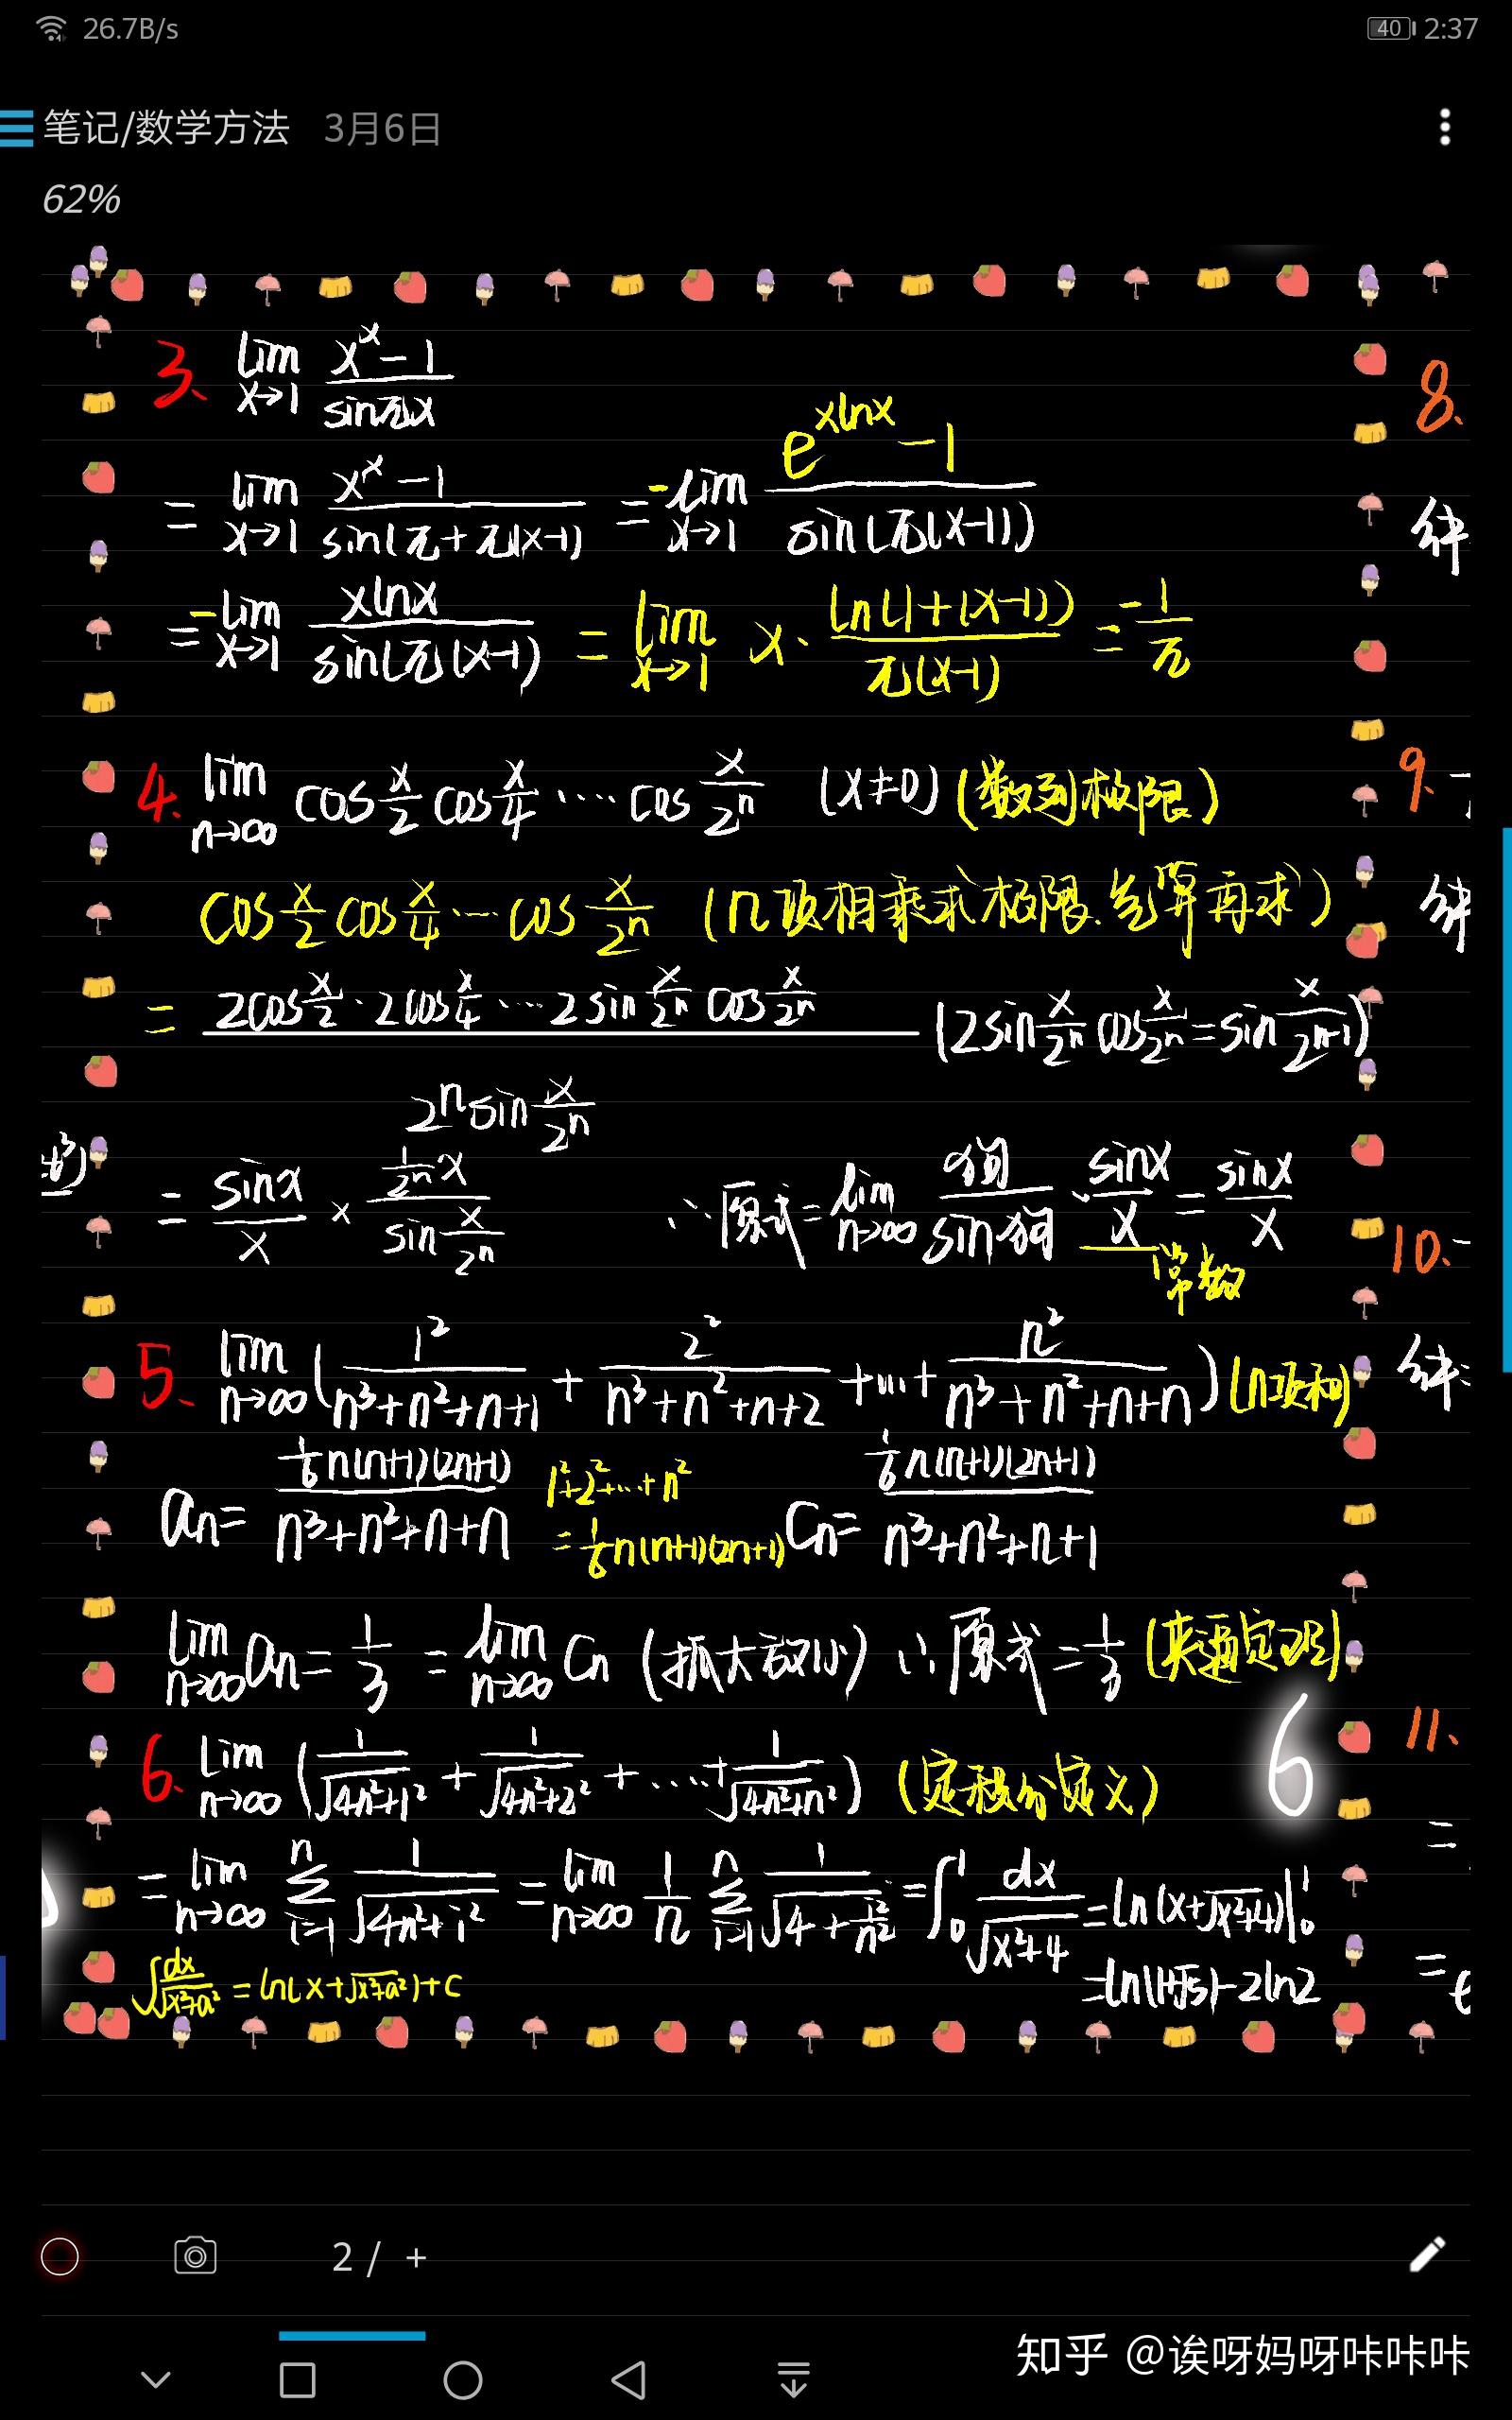 26.7B/s 40 2:37
笔记/数学方法 3月6日
62%
3、 lim x→1 (x^x-1)/(sinπx)
= lim x→1 (x^x-1)/(sin(π+π(x-1)) = -lim x→1 (e^(xlnx)-1)/(sin(π(x-1)))
= -lim x→1 (xlnx)/(sin(π(x-1)) = lim x→1 x·(ln(1+(x-1)))/(π(x-1)) = -1/π
4. lim n→∞ cos x/2 cos x/4 ···· cos x/2^n (x≠0) (数列极限)
cos x/2 cos x/4 ··· cos x/2^n (n项相乘求极限.先算再求)
= (2cos x/2 · 2cos x/4 ··· 2sin x/2^n cos x/2^n)/(2^n sin x/2^n) (2sin x/2^n cos x/2^n = sin x/2^(n-1))
= sinx/x × (1/2^n x)/(sin x/2^n) ∴原式= lim n→∞ 狗/sin狗 · sinx/x = sinx/x
常数
5、 lim n→∞ (1²/(n³+n²+n+1) + 2²/(n³+n²+n+2) +…+ n²/(n³+n²+n+n)) (n项和)
an= (1/6 n(n+1)(2n+1))/(n³+n²+n+n) 1²+2²+…+n² = 1/6 n(n+1)(2n+1) Cn= (1/6 n(n+1)(2n+1))/(n³+n²+n+1)
lim n→∞ an = 1/3 = lim n→∞ Cn (抓大放小) ∴原式=1/3 (夹逼定理)
6、 lim n→∞ (1/√(4n²+1²) + 1/√(4n²+2²) + ···· + 1/√(4n²+n²)) (定积分定义)
6
= lim n→∞ Σ i=1 n 1/√(4n²+i²) = lim n→∞ 1/n Σ i=1 n 1/√(4+i²/n²) = ∫₀¹ dx/√(x²+4) = ln(x+√(x²+4))|₀¹
∫dx/√(x²+a²) = ln(x+√(x²+a²))+C =ln(1+√5)-2ln2
8、
9.
10.
11、
2 / +
知乎 @诶呀妈呀咔咔咔